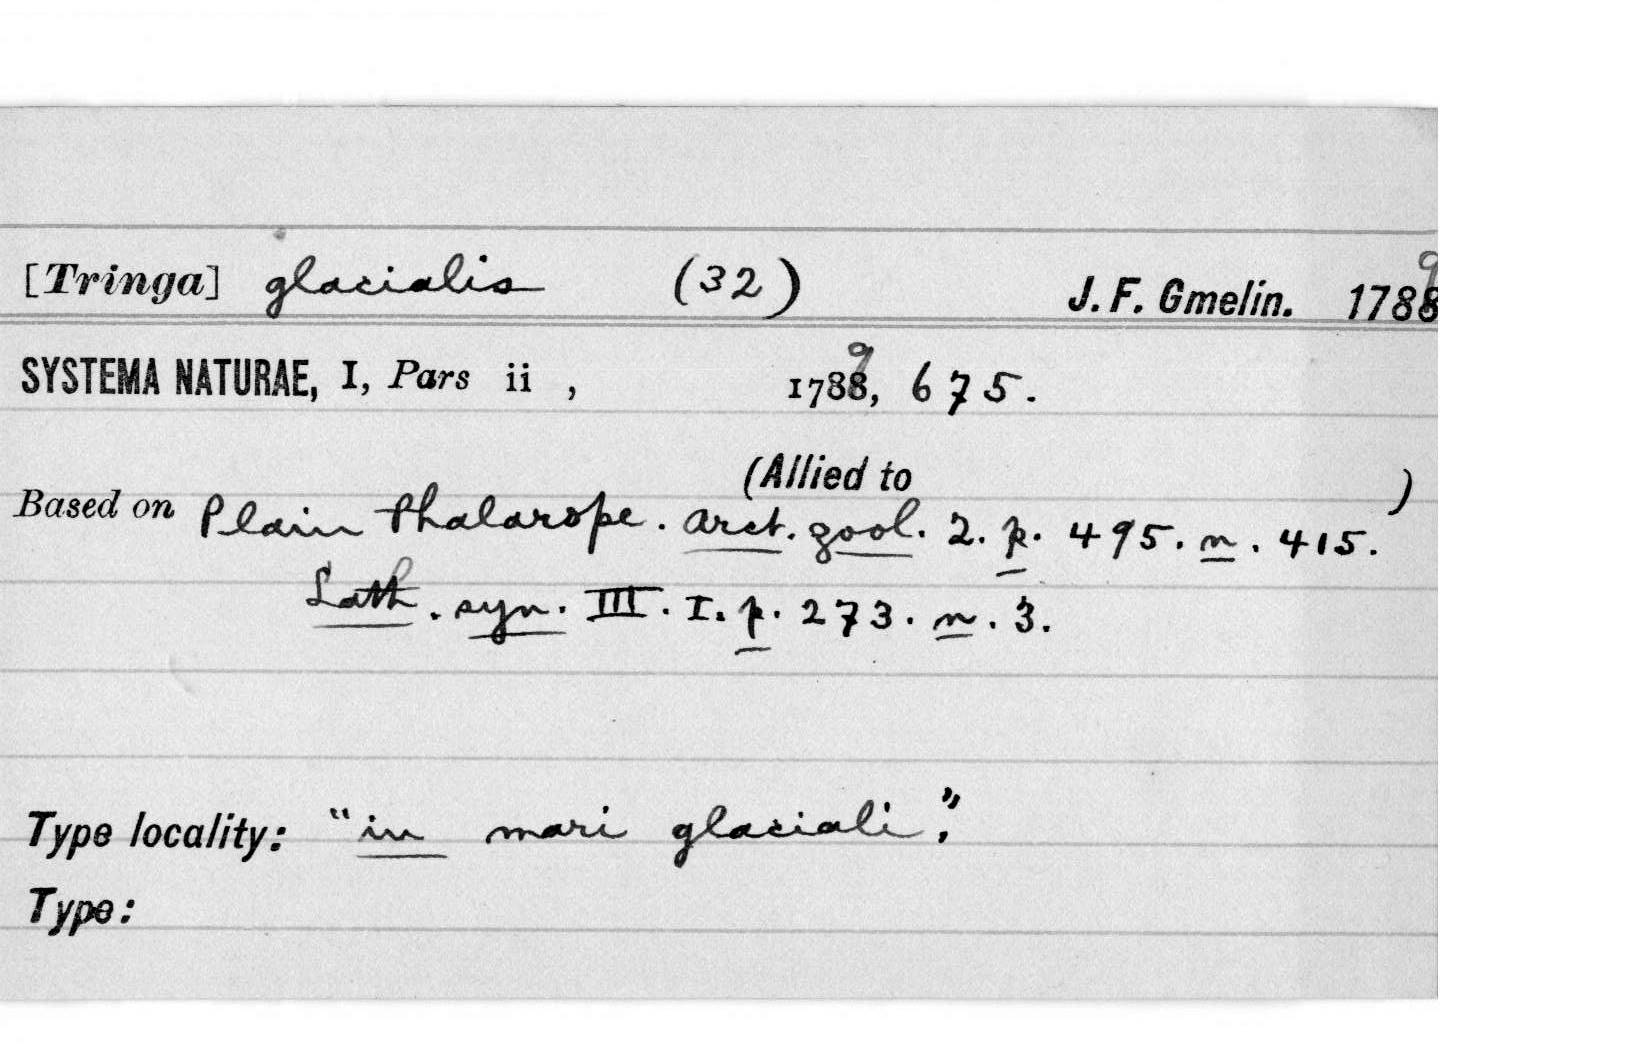 [Tringa] glacialis (32) J. F. Gmelin. 1788 9
SYSTEMA NATURAE, I, Pars ii , 1788 9, 675.
(Allied to )
Based on Plain Phalarope. Arct. zool. 2. p. 495. n. 415.
Lath. syn. III. I. p. 273. n. 3.
Type locality: "in mari glaciali".
Type: